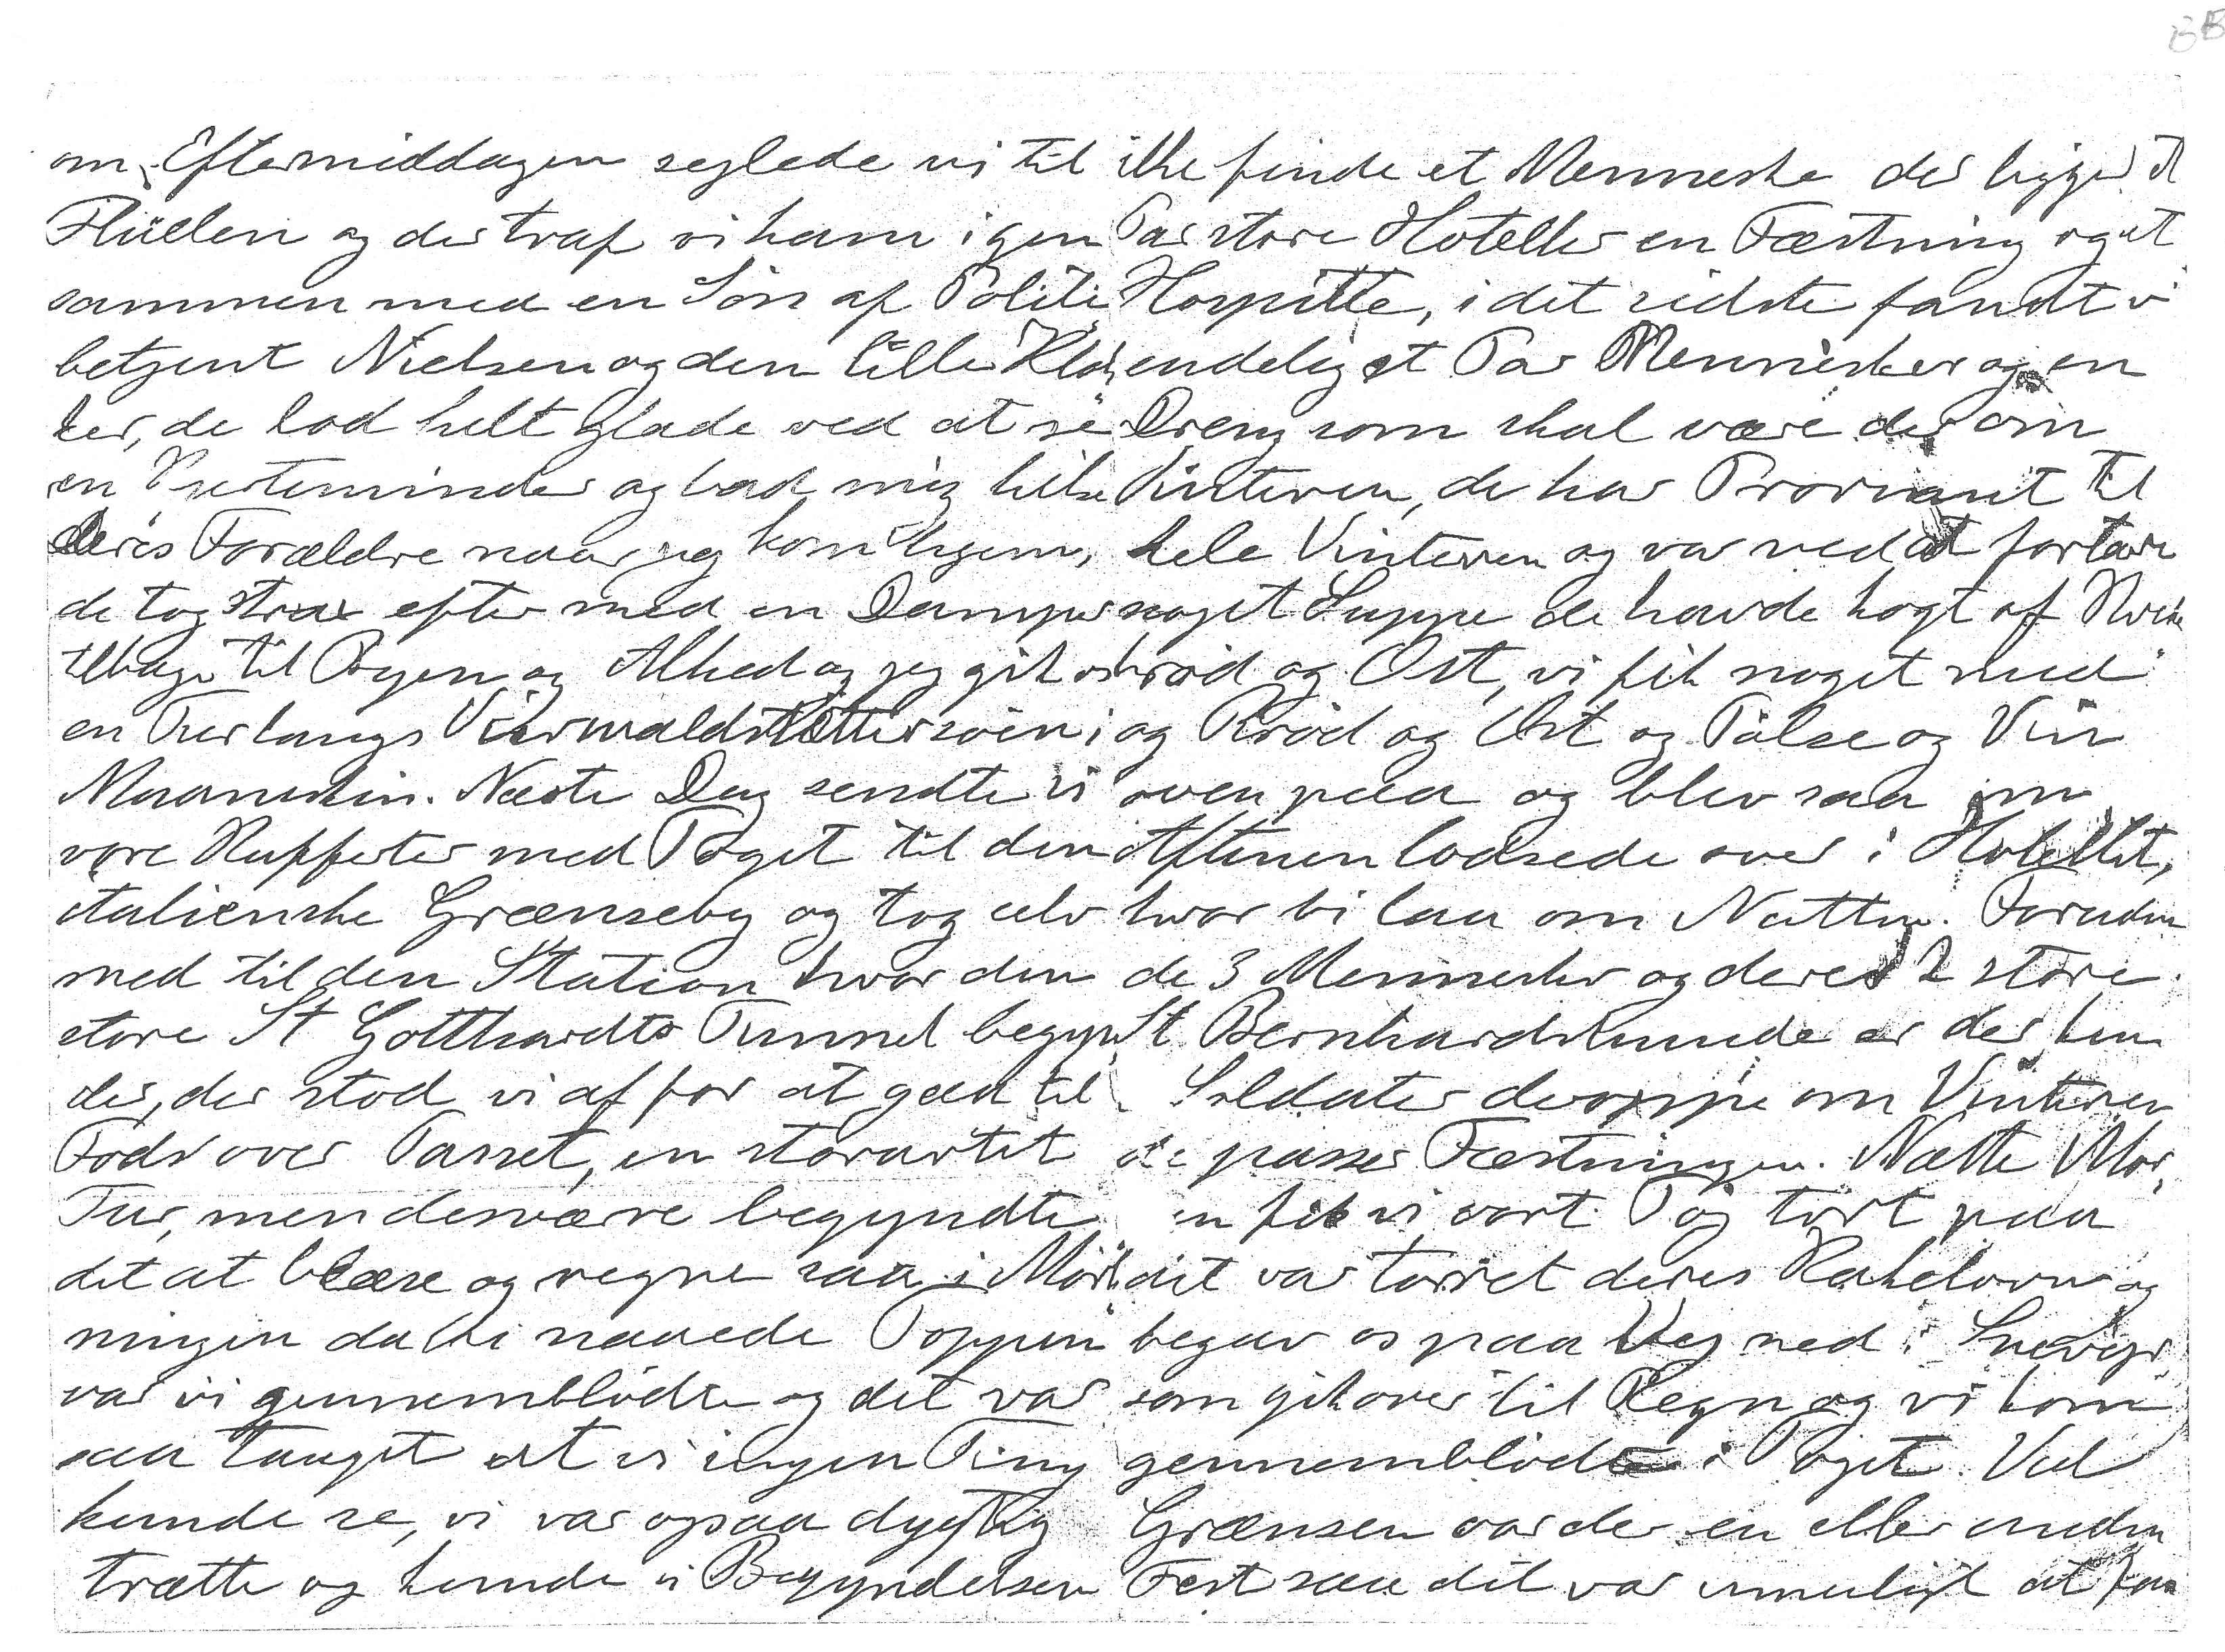 BB
om Eftermiddagen sejlede vi til
Flüelen og der traf vi ham igen
sammen med en Søn af Politi
betjent Nielsen og den lille Klok
ker, de lod helt glade ved at se
en og bad mig hilse
deres Forældre naar jeg kom hjem,
de tog strax efter med en Damper
tilbage til Byen og Alhed og jeg gik os
en Tur langs Vierwaldstättersøen i
Maaneskin. Næste Dag sendte vi
vore Kufferter med Toget til den
italienske Grænseby og tog selv
med til den Station hvor den
store St Gotthardts Tunnel begyn
der, der stod vi af for at gaa til
Fods over Passet, en storartet
Tur, men desværre begyndte
det at blæse og regne saa i Mørk
ningen da vi naaede Toppen
var vi gennemblødte og det var
saa taaget at vi ingen Ting
kunde se, vi var ogsaa dygtig
trætte og kunde i Begyndelsen
ikke finde et Menneske der ligger et
Par store Hoteller en Fæstning og et
Hospitte, i det sidste fandt vi
endelig et Par Mennesker og en
Dreng som skal være der om
Vinteren, de har Proviant til
hele Vinteren og var ved at fortære
noget Suppe de havde kogt af
brød og Ost, vi fik noget med
og Brød og Ost og Pølse og Vin
oven paa og blev saa om
Aftenen lodsede over i Hotellet,
hvor vi laa om Natten. Foruden
de 3 Mennesker og deres 2 store
St. Bernhardshunde er der kun
Soldater deroppe om Vinteren
de passer Fæstningen. Næste Mor
en fik vi vort Tøj tørt paa
det var tørret deres Kakelovn og
begav os paa Vej ned i
som gik over til Regn og vi kom
gennemblødte i Toget. Ved
Grænsen var der en eller anden
Fest saa det var umuligt at faa